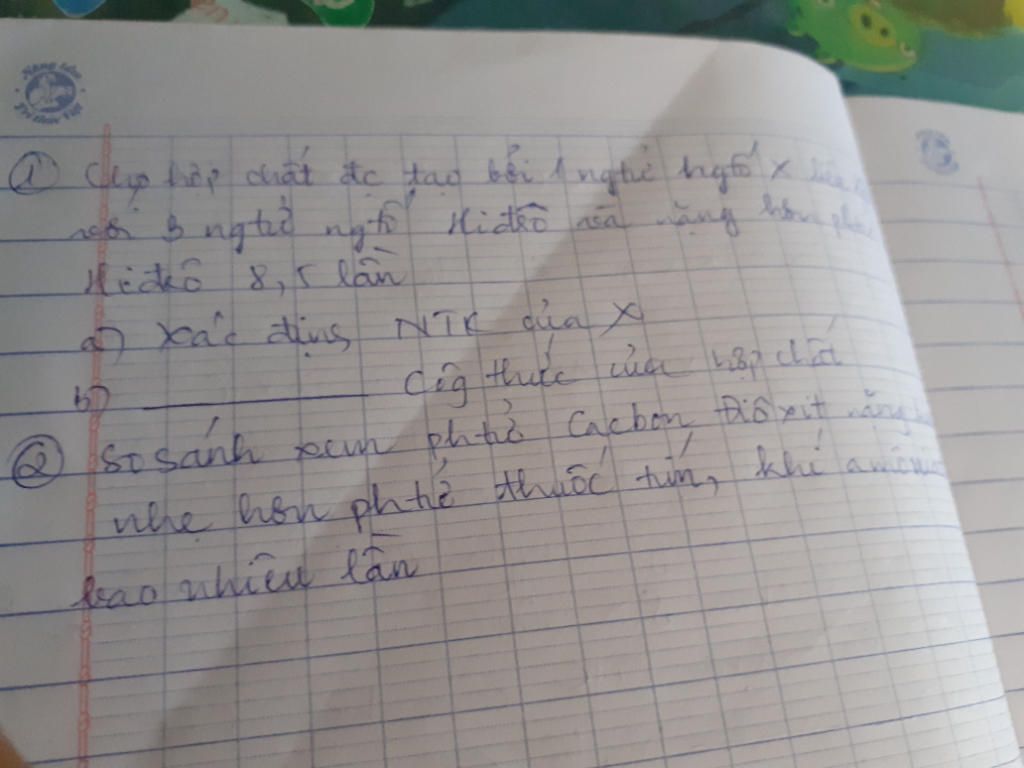 ① Một hợp chất đc tạo bởi 1 nghtử ngtố X liên
với 3 ngtử ngtố Hiđrô nặng hơn phân
Hiđrô 8,5 lần
a) Xác định NTK của X
b) ——— Côg thức của hợp chất
② So sánh xem phtử Cacbon Điôxit nặng
nhẹ hơn phtử thuốc tím, khí amôniac
bao nhiêu lần